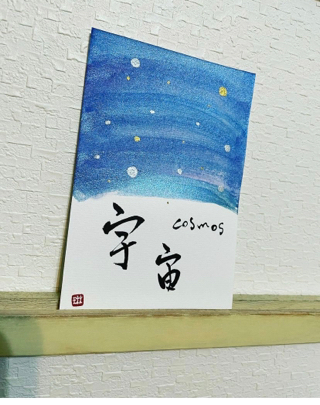 宇宙
cosmos